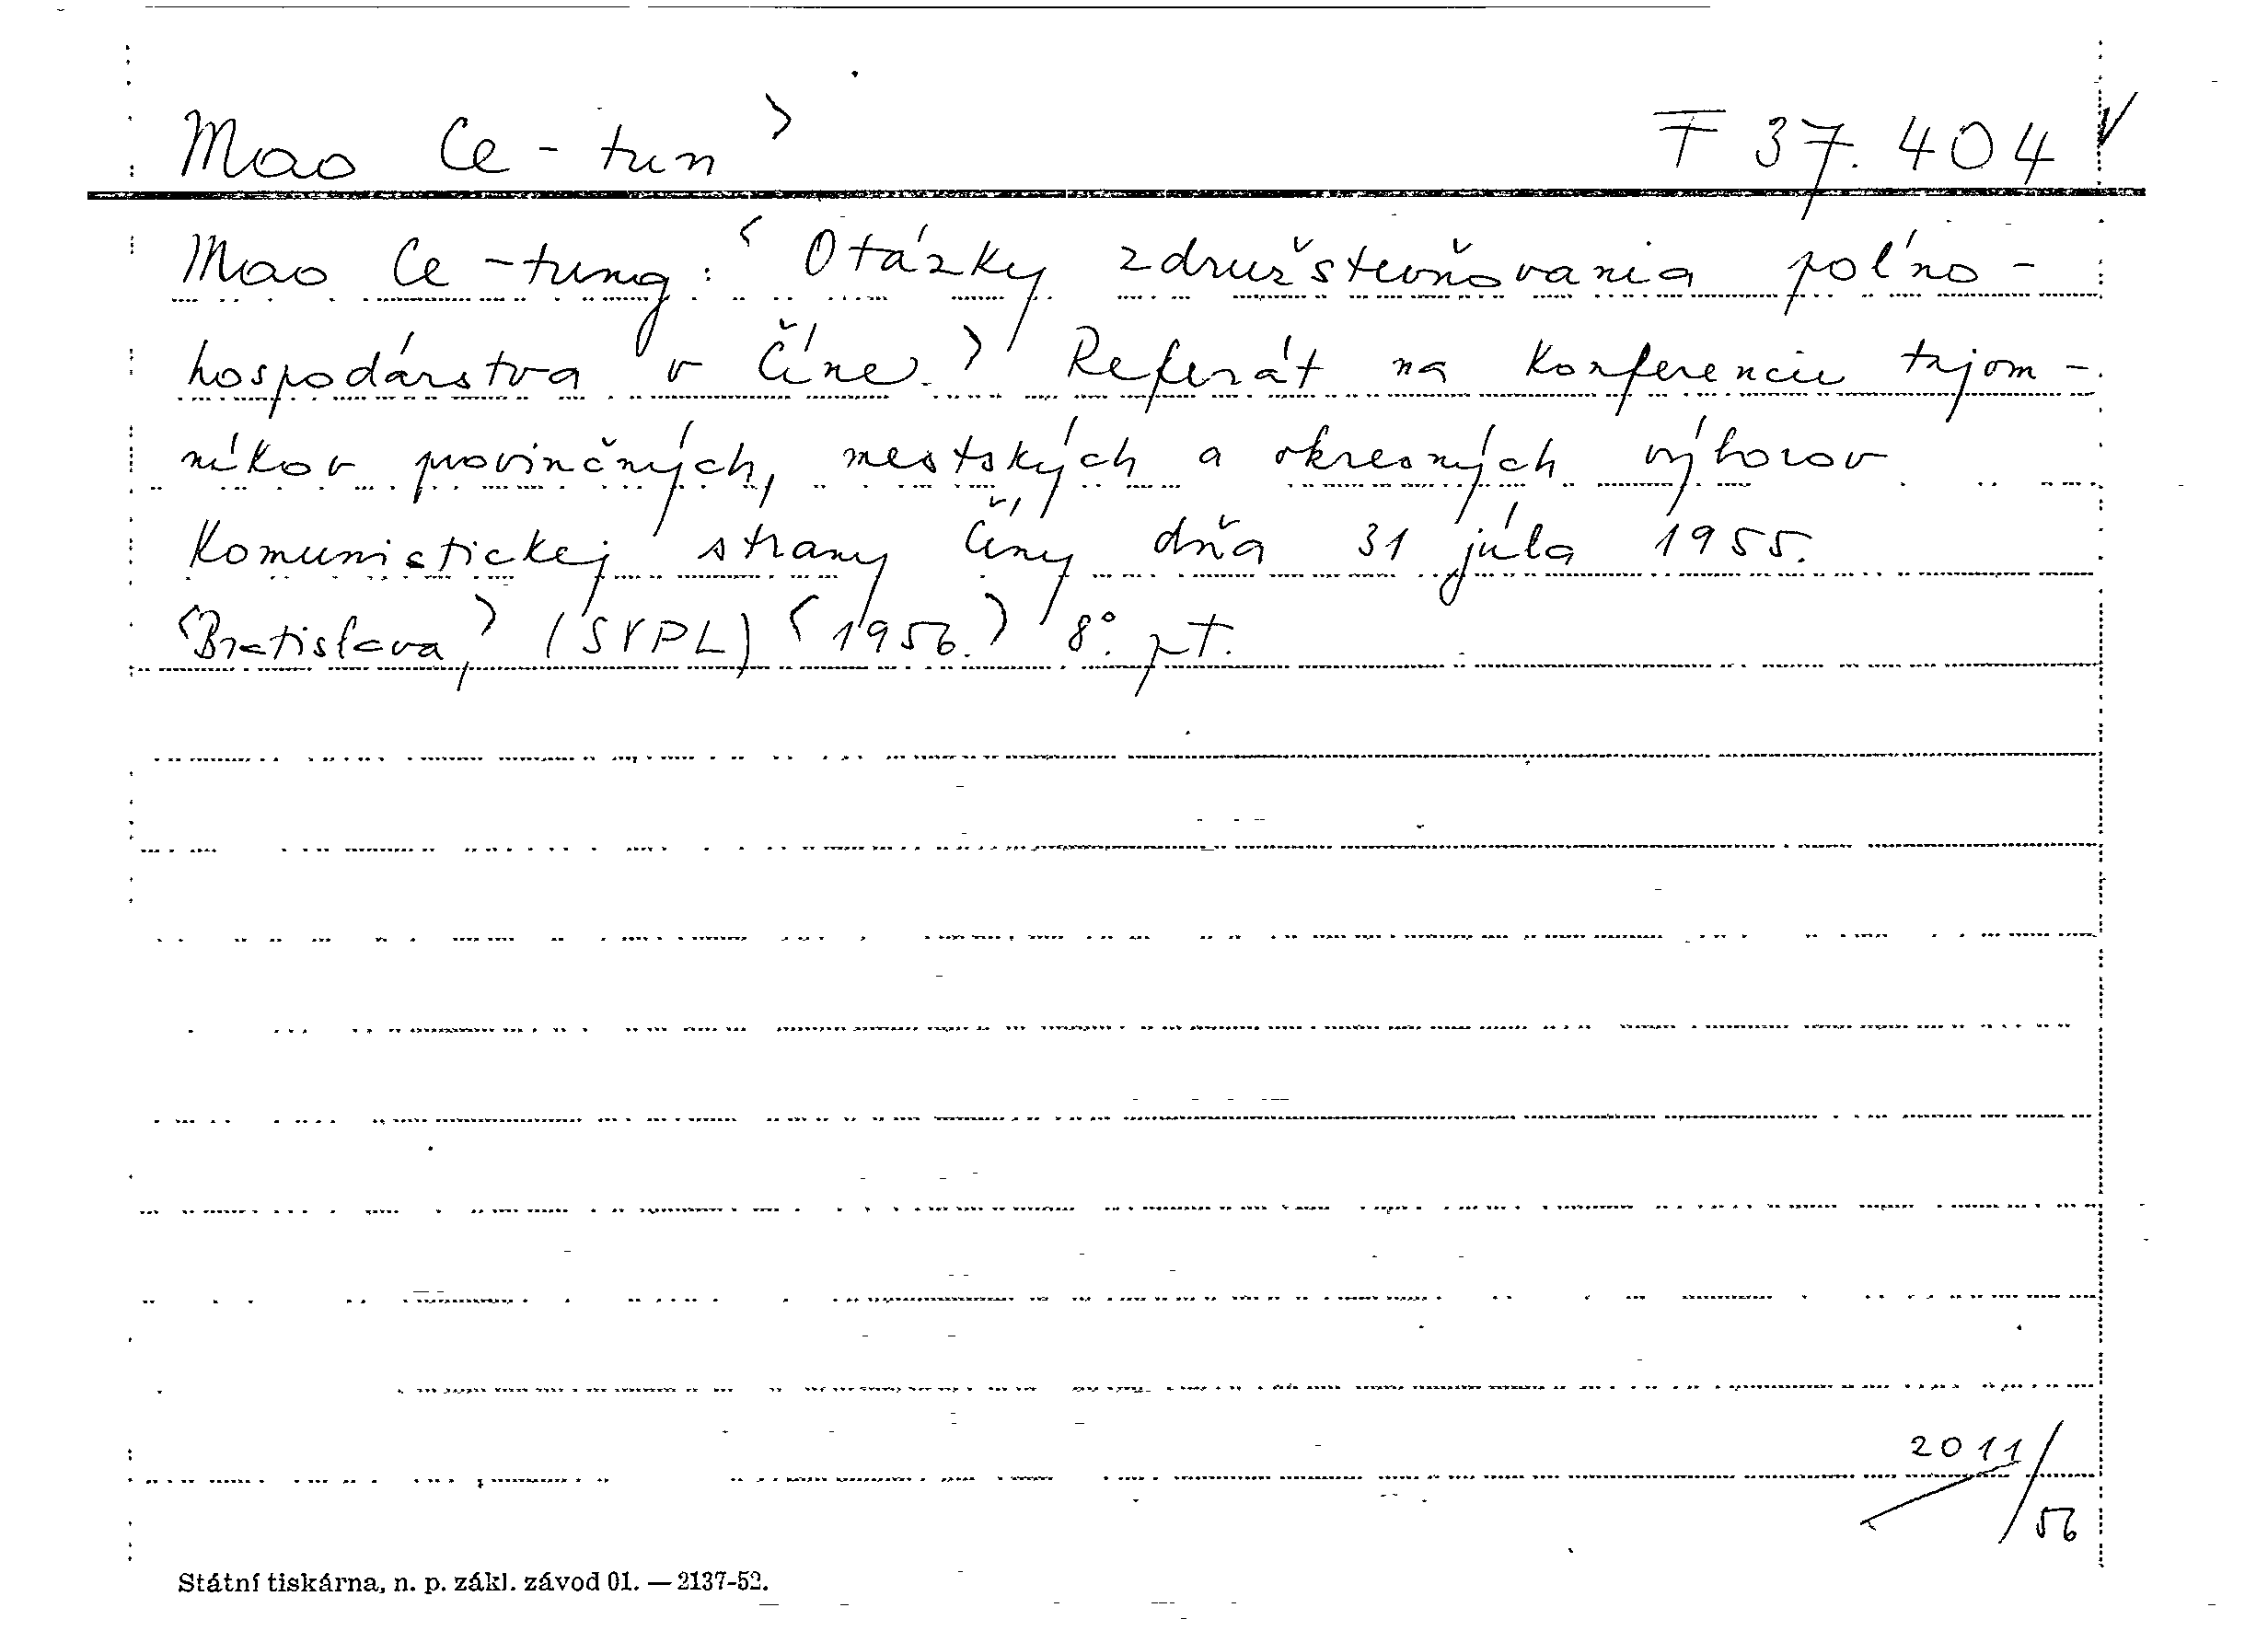 Mao Ce-tun > F 37.404 V
Mao Ce-tung: <Otázky združstevňovania poľno-
hospodárstva v Číne.> Referát na konferencii tajom-
níkov provinčných, mestských a okresných výborov
Komunistickej strany Číny dňa 31 júla 1955.
<Bratislava,> (SVPL) <1956.> 8°. pt.
2011/56
Státní tiskárna, n. p. zákl. závod 01. — 2137-52.